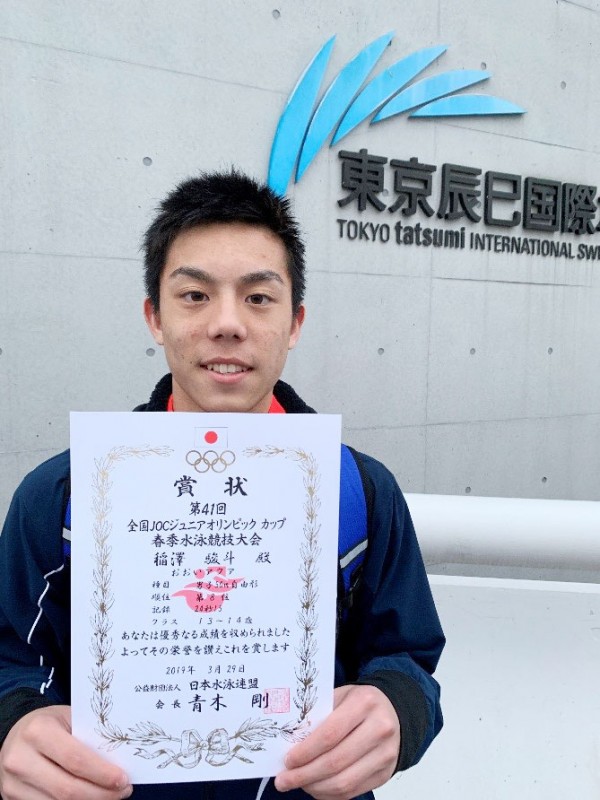 東京辰巳国際
TOKYO tatsumi INTERNATIONAL SWI
賞状
第41回
全国JOCジュニアオリンピック カップ
春季水泳競技大会
稲澤 駿斗 殿
おおいアクア
種目 男子50m自由形
順位 第8位
記録 24秒15
クラス 13~14歳
あなたは優秀なる成績を収められました
よってその栄誉を讃えこれを賞します
2019年 3月29日
公益財団法人 日本水泳連盟
会長 青木 剛